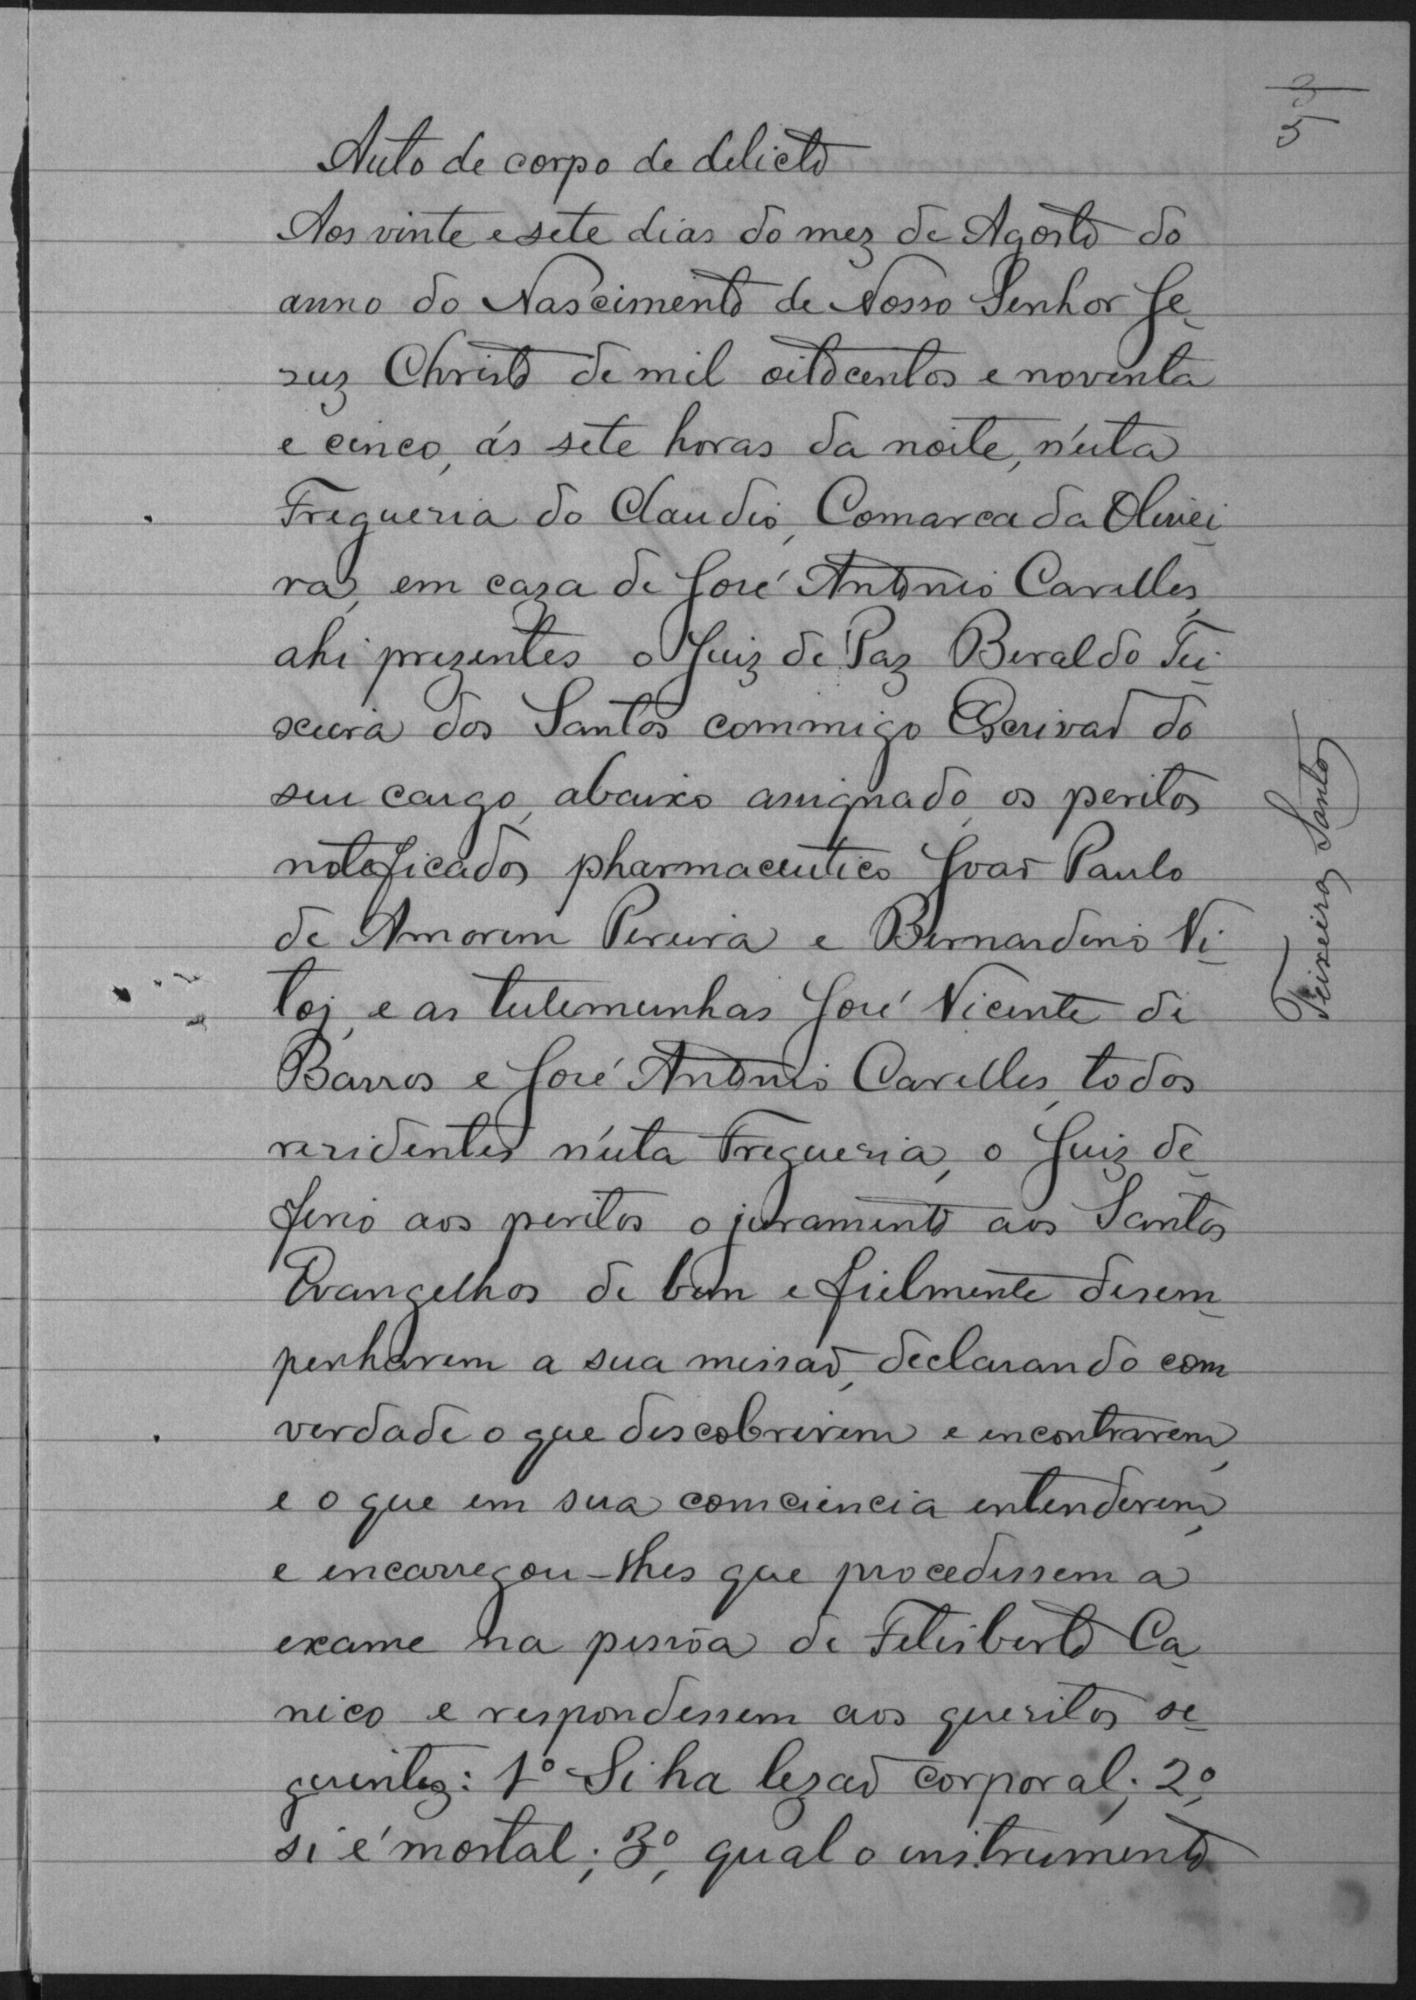 3
5
Auto de corpo de delicto
Aos vinte e sete dias do mez de Agosto do
anno do Nascimento de Nosso Senhor Je-
zuz Christo de mil oitocentos e noventa
e cinco, ás sete horas da noite, n'esta
Freguezia do Claudio, Comarca da Olivei-
ra, em caza de José Antonio Carelles,
ahi prezentes o Juiz de Paz Beraldo Tei-
xeira dos Santos commigo Escrivaõ do
seu cargo, abaixo assignado, os peritos
noteficados pharmaceutico Joaõ Paulo
de Amorem Pereira e Bernardino Ni-
toi, e as testemunhas José Vicente de
Barros e José Antonio Carelles, todos
rezidentes n'esta Freguezia, o Juiz de-
ferio aos peritos o juramento aos Santos
Evangelhos de bem e fielmente desem-
penharem a sua missaõ, declarando com
verdade o que descobrirem e encontrarem,
e o que em sua comciencia entenderem,
e encarregou-lhes que procedessem a
exame na pessôa de Felisberto Ca-
nico e respondessem aos quezitos se-
guintez: 1º Si ha lezaõ corporal; 2º,
si é mortal; 3º, qual o instrumento
Teixeira Santos